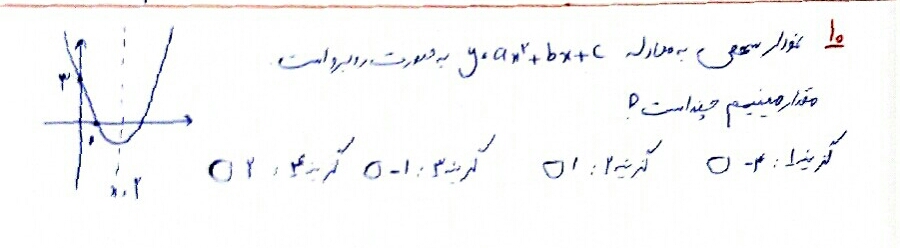 ۱۰ نمودار سهمی به معادله y=ax²+bx+c به صورت روبرو است.
مقدار مینیمم چند است؟
گزینه ۱: -۳ گزینه ۲: ۱ گزینه ۳: -۱ گزینه ۴: ۲
۳
۱
x=۲